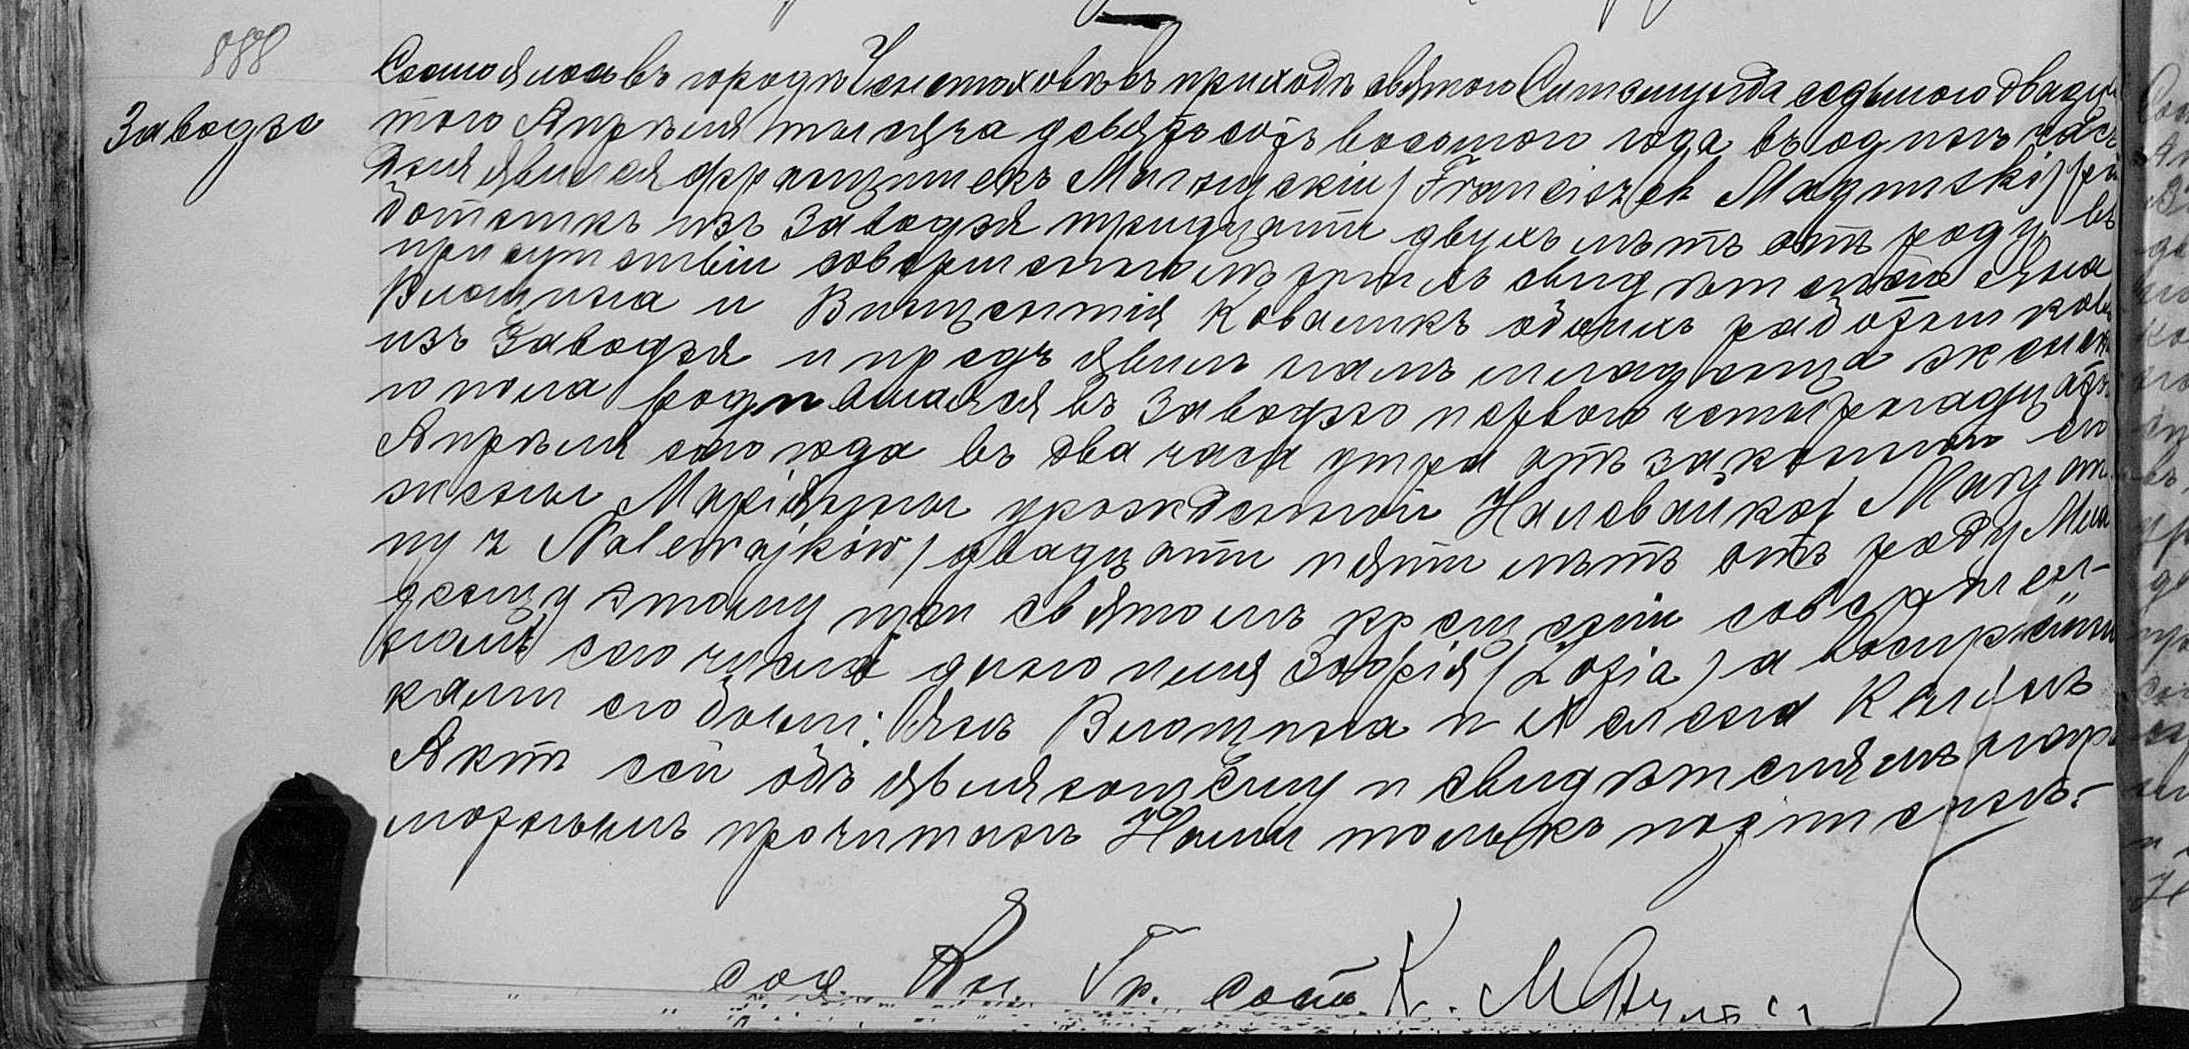 888
Заводзе
Состоялось въ городѣ Ченстоховѣ въ приходѣ святого Сигизмунда седьмого двадца
того Апрѣля тысяча девятьсотъ восьмого года въ одинъ часъ
дня явился Францишекъ Магнускій (Franciszek Magnuski) ра
ботникъ изъ Заводзя тридцати двухъ лѣтъ отъ роду, въ
присутствіи совершеннолѣтнихъ свидѣтелей Яна
Влощика и Винцентія Коваликъ обоихъ работниковъ
изъ Заводзя и предъявилъ намъ младенца женска
го пола родившагося въ Заводзю первого четырнадцатъ
Апрѣля сего года въ два часа утра отъ законной его
жены Маріянны урожденной Налевайко (Maryan
ny z Nalewajków) двадцати пяти лѣтъ отъ роду Мла
денцу этому при святомъ крещеніи совершен-
номъ сего числа дано имя Зофія (Zofia) а воспріемни
ками его были: Янъ и
Актъ сей объявляющему и свидѣтелямъ негра
мотнымъ прочитанъ Нами только подписанъ.-
сод. Кн. Гр. сост. К.